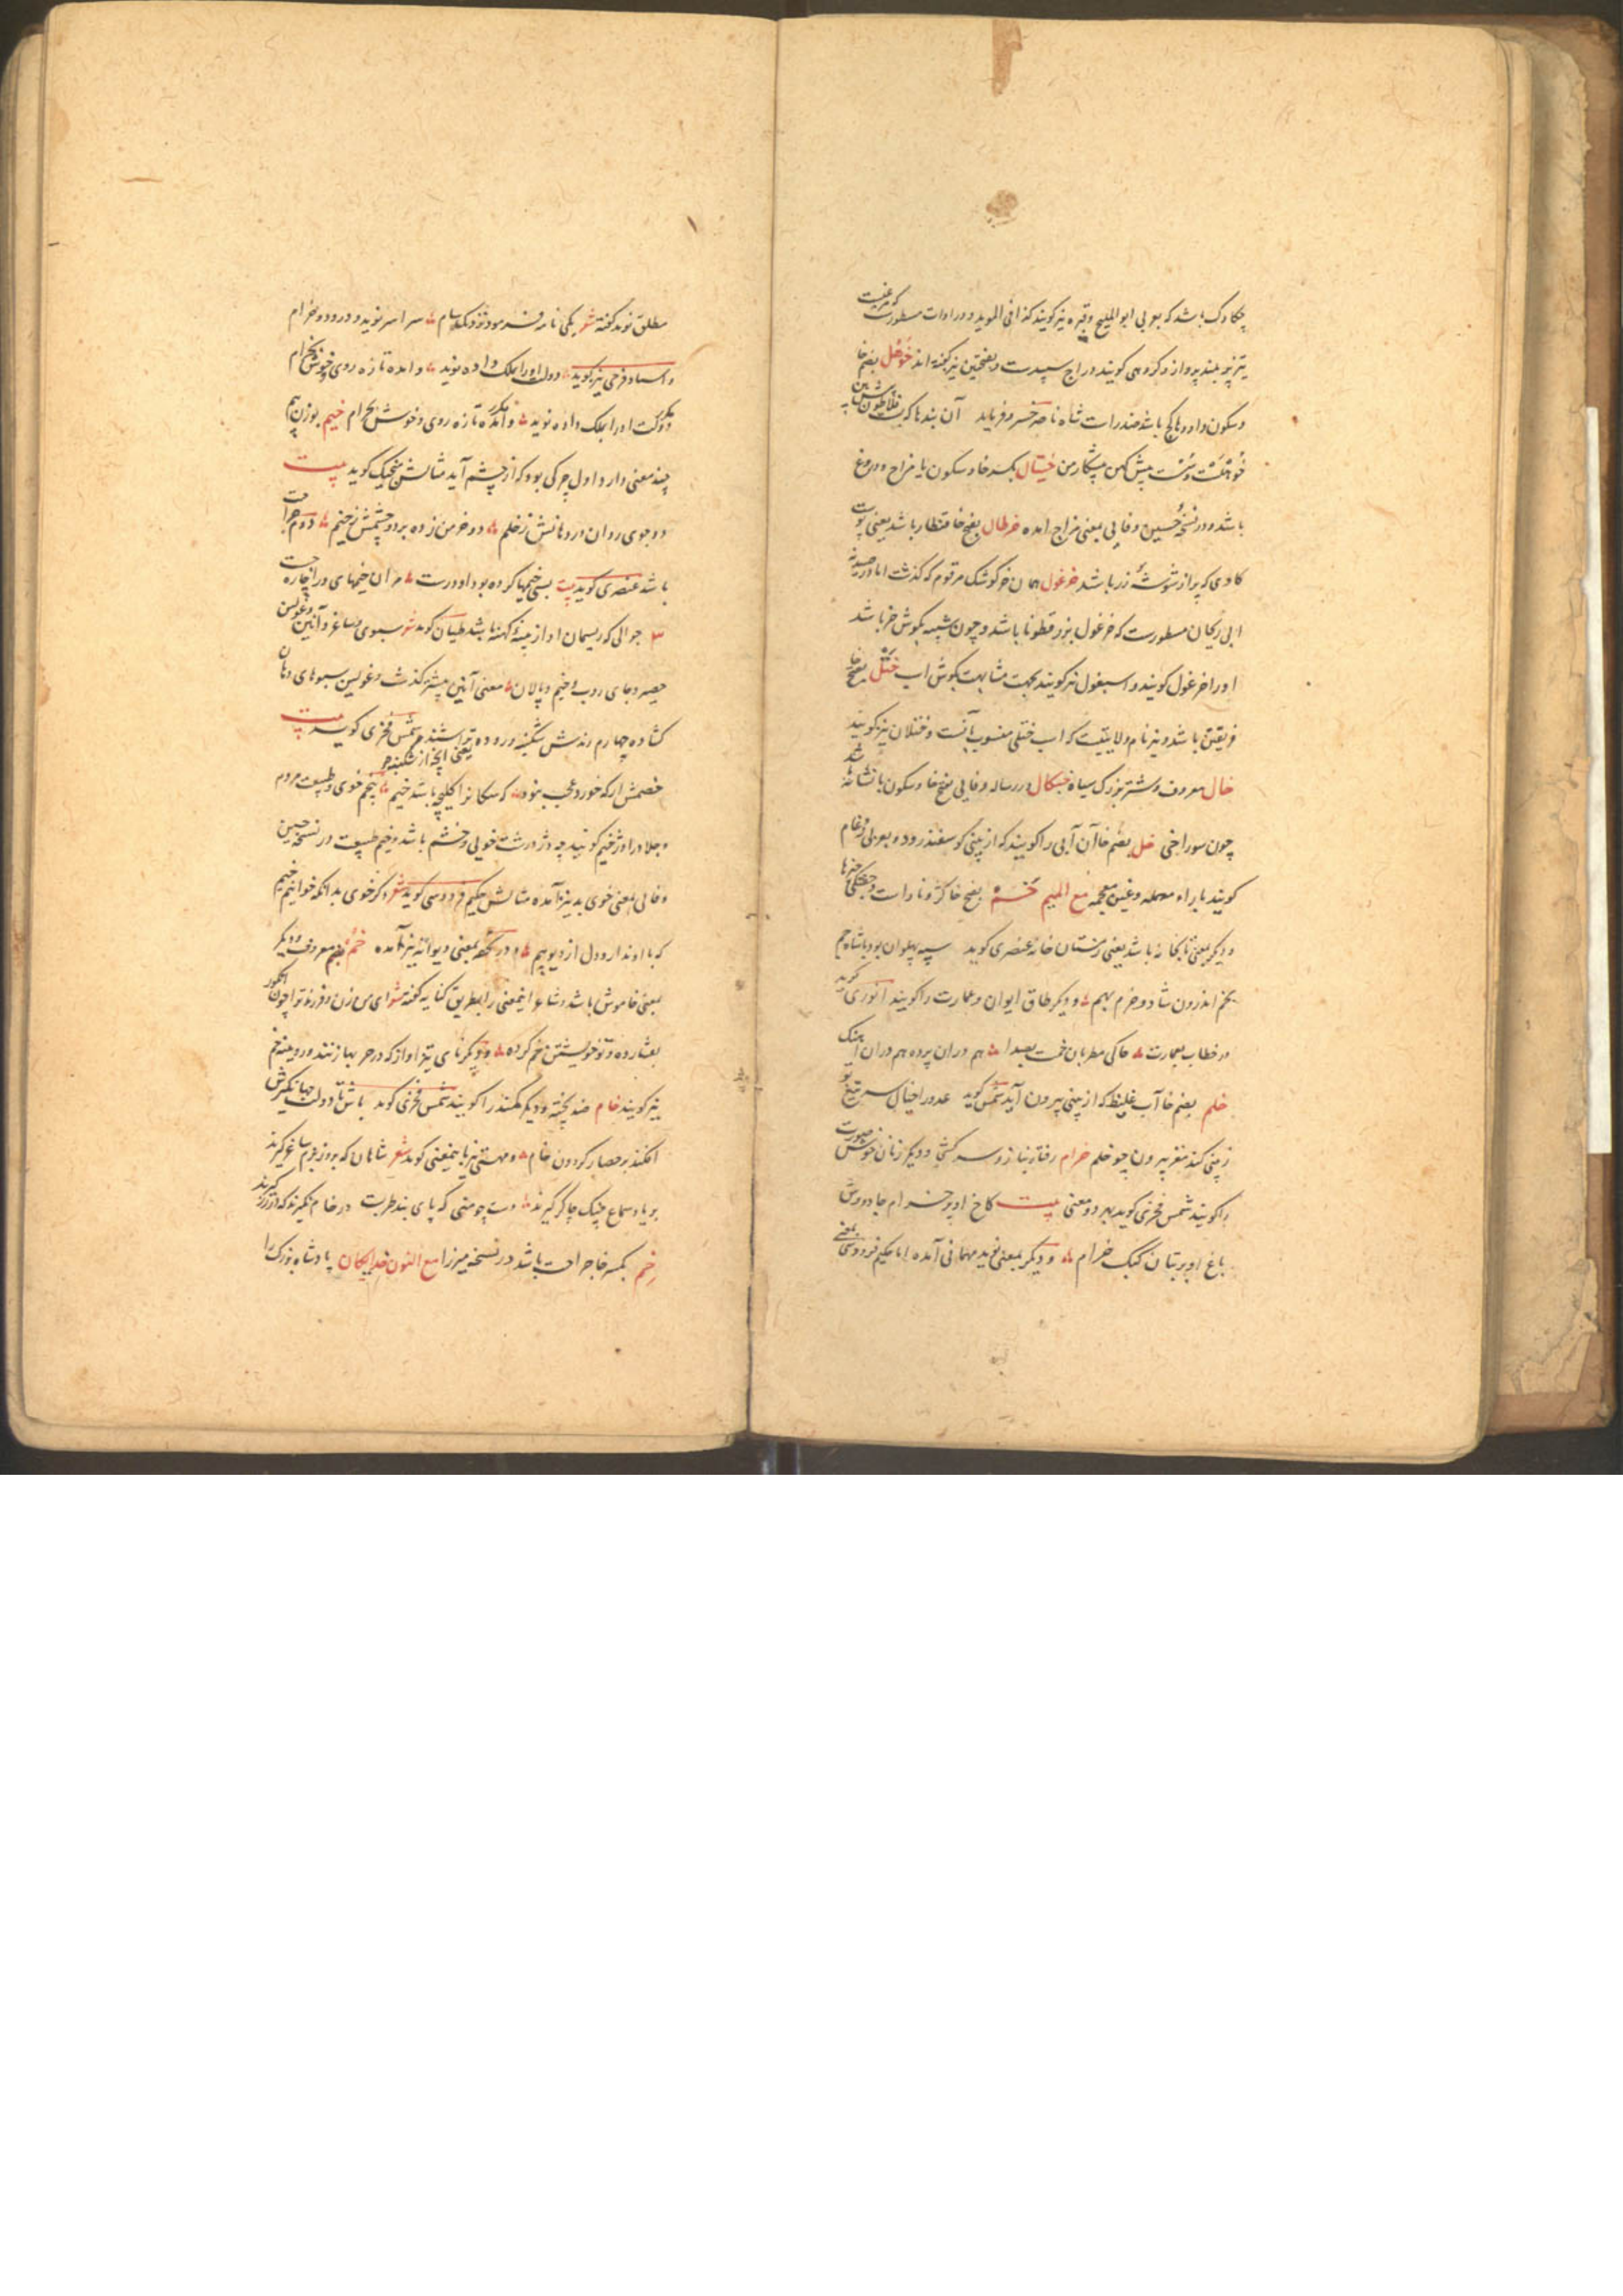 چکاوک باشد که بعربی ابو الملیح و قبره نیز گویند کذا فی الموید و در ادات مسطورست که مرغیست
تیز پر بلند پرواز و گروهی گویند دراج سپیدست و بفتحتین نیز گفته اند خوهل بضم خا
و سکون واو و ها کج باشد ضد راست شاه ناصر خسرو فرماید آن بندها که بست فلاطون پیش بین
خوهلست و سست پیش کهین پیشکار من خیتال بکسر خا و سکون یا مزاح و دروغ
باشد و در نسخه حسین وفایی بمعنی مزاج امده خرطال بفتح خا قنطار باشد یعنی پوست
کاوی که پر از شوشه زر باشد خرغول همان خرگوشک مرقوم که گذشت اما در صیدنه
ابی ریحان مسطورست که خرغول بزر قطونا باشد و چون شبیه بگوش خر باشد
اورا خرغول گویند و اسبغول نیز گویند بجهت مشابهت بگوش اسب ختل بفتح خا
فریفتن باشد و نیز نام ولایتیست که اسب ختلی منسوب بآنست و ختلان نیز گویند
خال معروف و شتر بزرگ سیاه خسکال در رساله وفایی بفتح خا و سکون با نشانه
چون سوراخی خل بضم خا آن آبی را گویند که از بینی گوسفند رود و بعربی رغام
گویند براء مهمله و غین معجمه مع المیم خم بفتح خا کژ و ناراست و خمیدگی چیزها
و دیگر بمعنی تابخانه باشد یعنی زمستان خانه عنصری گوید سپه پهلوان بود با شاه جم
بخم اندرون شاد و خرم بهم و دیگر طاق ایوان و عمارت را گویند انوری گوید
در خطاب بعمارت حاکی مطربان خمت بصدا هم دران پرده هم دران آهنک
خلم بضم خا آب غلیظ که از بینی بیرون آید شمس گوید عدو را خیال سر تیغ تو
ز بینی کند مغز بیرون چو خلم خرام رفتار بناز و سرکشی و دیگر زنان خوش صورت
را گویند شمس فخری گوید بهر دو معنی بیت کاخ او پر خرام جادووش
باغ او پر تبان کبک خرام و دیگر بمعنی نوید مهمانی آمده اما حکیم فردوسی بمعنی
مطلق نوید گفته شعر یکی نامه فرمود نزدیک سام سراسر نوید و درود و خرام
و استاد فرخی نیز گوید دولت اورا بملک داده نوید و آمده تازه روی و خوش بخرام
دولت اورا بملک داده نوید و آمده تازه روی و خوش بخرام خیم بوزن بیم
چند معنی دارد اول چرکی بود که از چشم آید مثالش منجیک گوید بیت
دو جوی روان در دهانش ز خلم دو خرمن زده بر دو چشمش ز خیم دوم جراحت
باشد عنصری گوید بیت بسی خیمها کرده بود او درست مر ان خیمهای ورا چاره جست
۳ جوالی که ریسمان او از پنبه کهنه باشد طیان گوید شعر سبوی و ساغر و آنین و غولین
حصیر و جای روب و خیم و پالان معنی آنین پیشتر گذشت و غولین سبوهای دهان
گشاده چهارم رندش شکنبه و روده تراشند شمس فخری گوید بیت یعنی آنچه از شکنبه و
خصمش ار که خورد عجب نبود که سگانرا کلیچه باشد خیم پنجم خوی و طبیعت مردم
و جلاد را دژخیم گویند چه دژ درشت خویی و خشم باشد و خیم طبیعت در نسخه حسین
وفایی بمعنی خوی بد نیز آمده مثالش حکیم فردوسی گوید شعر دگر خوی بد آنکه خوانیم خیم
که با او ندارد دل از دیو بیم و در تحفه بمعنی دیوانه نیز آمده خم بضم معروف و دیگر
بمعنی خاموش باشد و شاعر اینمعنی را بطریق کنایه گفته شعر ای من رزن و فرزند تو چون انگور
بفشارده و تو خویشتن خم کرده و دیگر نای تیز اواز که در حربها زنند و رویینه خم
نیز گویند خام ضد پخته و دیگر کمند را گویند شمس فخری گوید باش تا دولت جهانگیرش
افکند بر حصار گردون خام و مهستی نیز باینمعنی گوید شعر شاهان که بروز بزم ساغر گیرند
بر یاد سماع چنگ چاکر گیرند دست چو منی که پای بند طربست در خام نگیرند که در زر گیرند
خم بکسر خا جراحت باشد در نسخه میرزا مع النون خدایگان پادشاه بزرک را